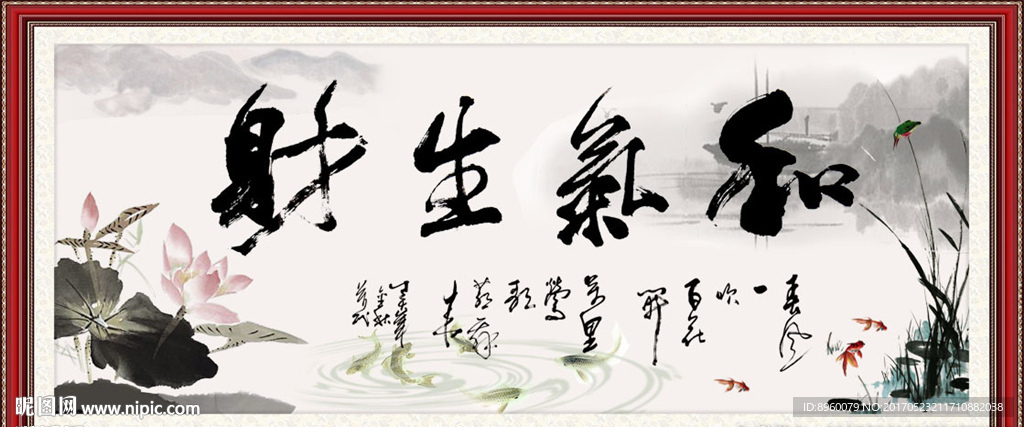 和氣生財
春风
一吹
百花
開
万里
鶯
歌
燕舞
春
昵图网 www.nipic.com
ID:8960079 NO:20170523211710882038